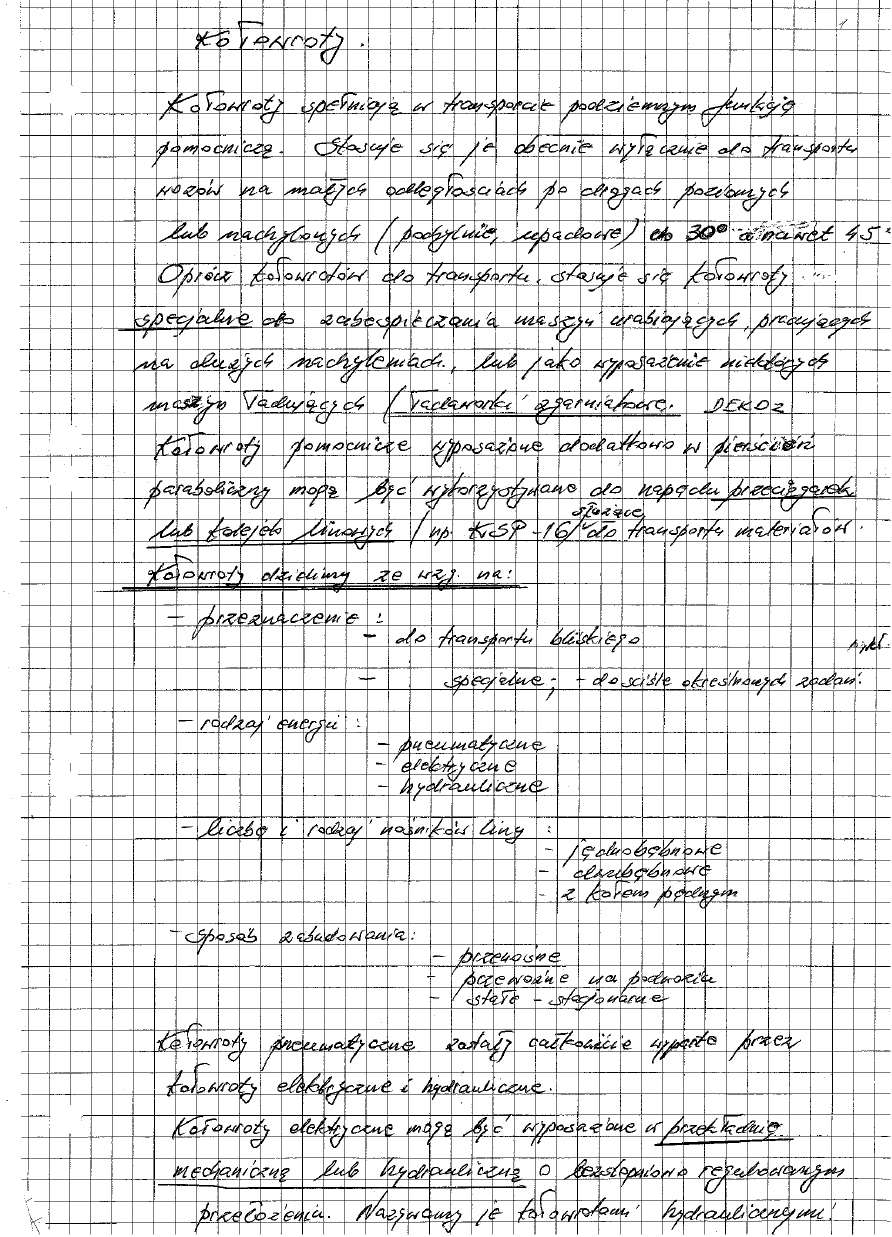 1
Kołowroty.
Kołowroty spełniają w transporcie podziemnym funkcję
pomocniczą. Stosuje się je obecnie wyłącznie do transportu
wozów na małych odległościach po drogach poziomych
lub nachylonych (pochylnie, upadowe) do 30° a nawet 45°
Oprócz kołowrotów do transportu, stosuje się kołowroty
specjalne do zabezpieczania maszyn urabiających, pracujących
na dużych nachyleniach, lub jako wyposażenie niektórych
maszyn ładujących (ładowarki zgarniakowe. DEKOZ
Kołowroty pomocnicze wyposażone dodatkowo w pierścień
paraboliczny mogą być wykorzystywane do napędu przeciągarek
służące
lub kolejek linowych / np. KSP-16/ do transportu materiałów.
Kołowroty dzielimy ze wzg. na:
- przeznaczenie:
- do transportu bliskiego
- specjalne; - do ściśle określonych zadań.
- rodzaj energii:
- pneumatyczne
- elektryczne
- hydrauliczne
- liczbę i rodzaj nośników liny:
- jednobębnowe
- dwubębnowe
- z kołem pędnym
- sposób zabudowania:
- przenośne
- przewoźne na podwoziu
- stałe - stacjonarne
Kołowroty pneumatyczne zostały całkowicie wyparte przez
kołowroty elektryczne i hydrauliczne.
Kołowroty elektryczne mogą być wyposażone w przekładnię
mechaniczną lub hydrauliczną o bezstopniowo regulowanym
przełożeniu. Nazywamy je kołowrotami hydraulicznymi!